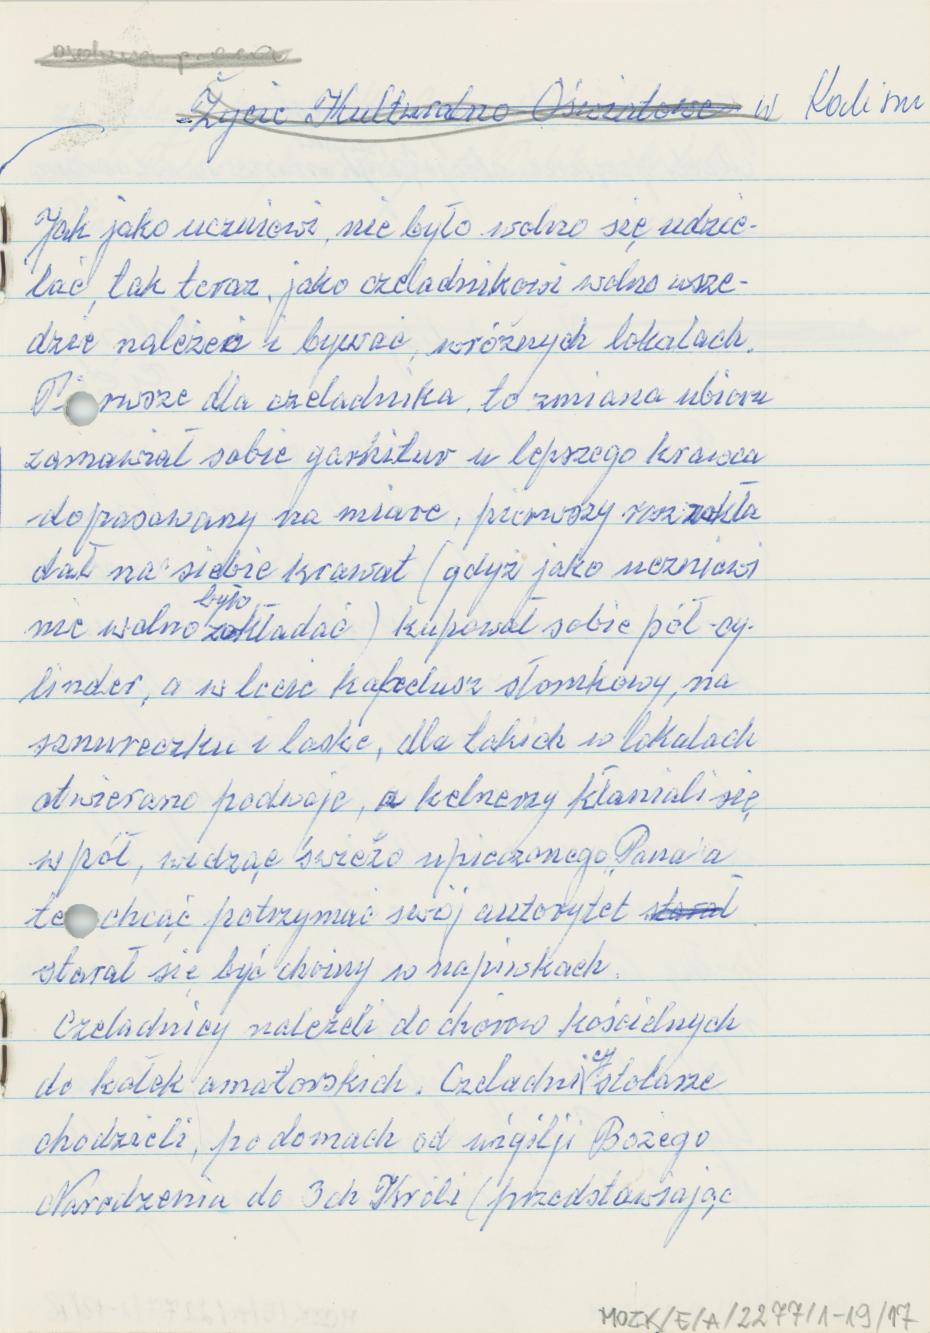 osobna praca
Życie Kulturalno Oświatowe w
Jak jako uczniowi, nie było wolno się udzie-
lać, tak teraz, jako czeladnikowi wolno wszę-
dzie należeć i bywać, w różnych lokalach.
Pierwsze dla czeladnika, to zmiana ubioru
zamawiał sobie garnitur u lepszego krawca
dopasowany na miarę, pierwszy raz zakła
dał na siebie krawat (gdyż jako uczniowi
nie wolno było zakładać) kupował sobie pół-cy-
linder, a w lecie kapelusz słomkowy, na
sznureczku i laskę, dla takich w lokalach
otwierano podwoje, a kelnerzy kłaniali się
w pół, widząc świeżo upieczonego "Pana" a
ten chcąc potrzymać swój autorytet starał
starał się być hojny w napiwkach.
Czeladnicy należeli do chórów kościelnych
do kółek amatorskich. Czeladnicy stolarze
chodzili, po domach od wigilji Bożego
Narodzenia do 3ch Króli (przedstawiając
MOZK/E/A/2277/1-19/17